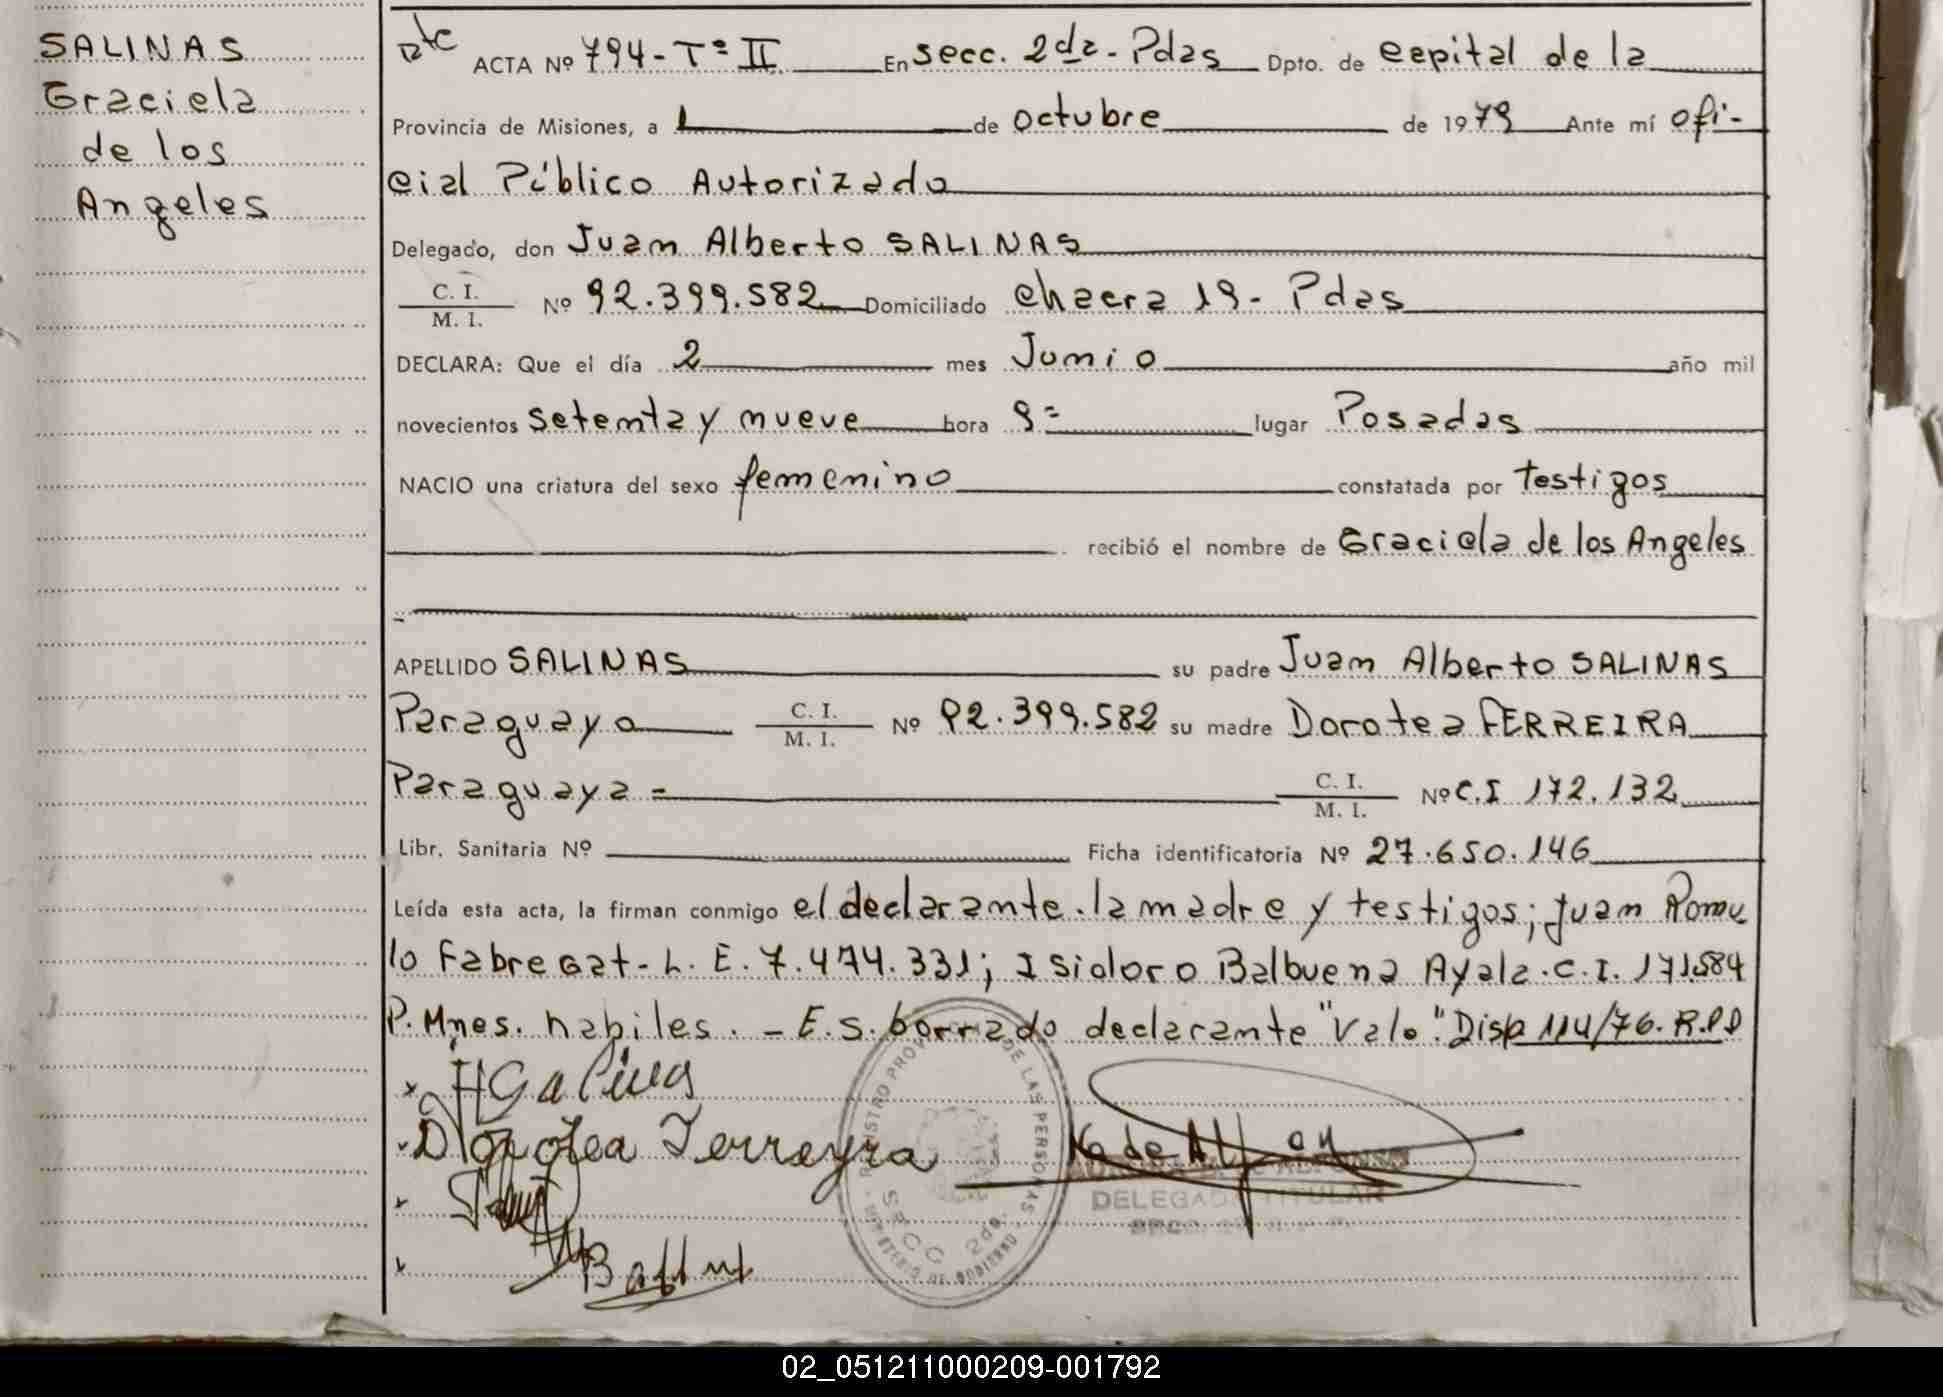 SALINAS
Graciela
de los
Angeles
ACTA Nº 794 - Tº II En secc. 2da - Pdas Dpto. de capital de la
Provincia de Misiones, a 1 de octubre de 1979 Ante mí ofi-
cial Público Autorizado
Delegado, don Juan Alberto SALINAS
C. I. / M. I. Nº 92.399.582 Domiciliado chacra 19 - Pdas
DECLARA: Que el día 2 mes Junio año mil
novecientos setenta y nueve hora 9= lugar Posadas
NACIO una criatura del sexo femenino constatada por testigos
recibió el nombre de Graciela de los Angeles
APELLIDO SALINAS su padre Juan Alberto SALINAS
Paraguayo C. I. / M. I. Nº 92.399.582 su madre Dorotea FERREIRA
Paraguaya = C. I. / M. I. Nº C.I 172.132
Libr. Sanitaria Nº Ficha identificatoria Nº 27.650.146
Leída esta acta, la firman conmigo el declarante. la madre y testigos; Juan Romu
lo Fabregat - L. E. 7.474.331; Isidoro Balbuena Ayala. C. I. 171.584
P. Mnes. habiles. - E. s. borrado declarante "Vale". Disp 114/76. R.P.P
Dorotea Ferreyra
REGISTRO PROV DE LAS PERSONAS
MINISTERIO DE GOBIERNO
SECC 2da.
DELEGADA TITULAR
02_051211000209-001792